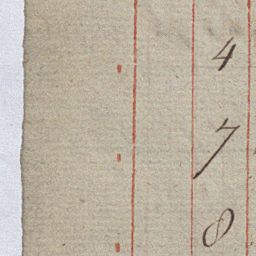 4
7
8